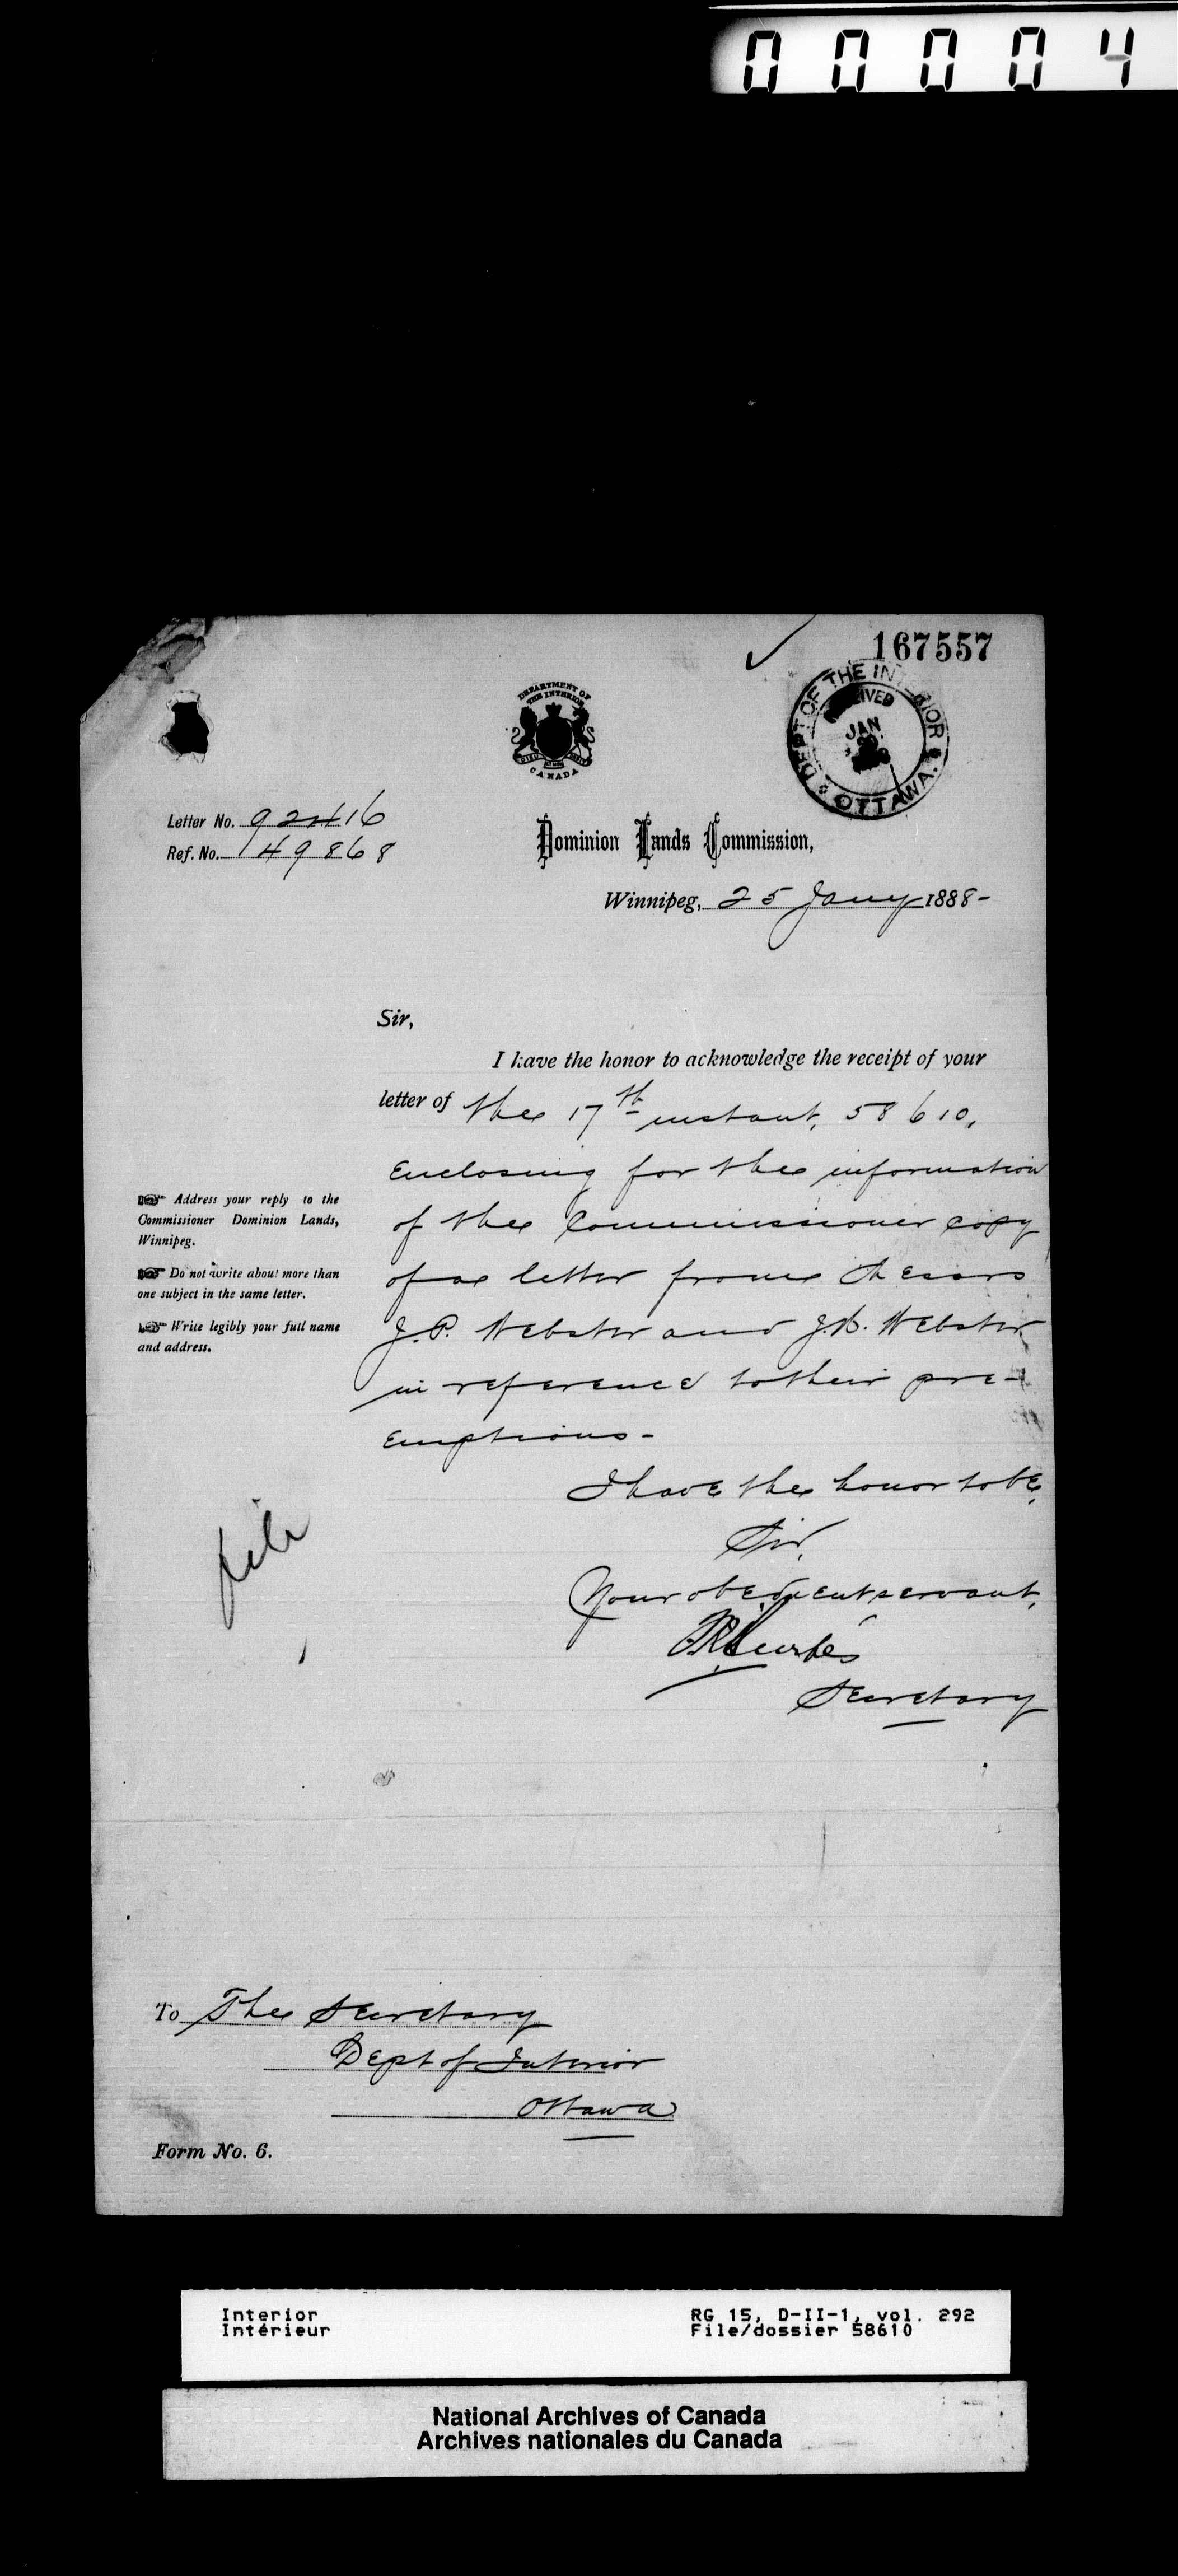 00004
167557
DEPARTMENT OF
THE INTERIOR
CANADA
DEPT OF THE INTERIOR
RECEIVED
JAN
OTTAWA.
Letter No. 92416
Ref. No. 149868
Dominion Lands Commission,
Winnipeg, 25 Jany 1888-
Sir,
I have the honor to acknowledge the receipt of your
letter of the 17th instant, 58610,
Enclosing for the information
of the Commissioner copy
of a letter from Messrs
J.P. Webster and J.B. Webster
in reference to their pre-
emptions-
Address your reply to the
Commissioner Dominion Lands,
Winnipeg.
Do not write about more than
one subject in the same letter.
Write legibly your full name
and address.
I have the honor to be,
Sir,
Your obedient servant,
Secretary
file
To The Secretary
Dept of Interior
Ottawa
Form No. 6.
Interior RG 15, D-II-1, vol. 292
Intérieur File/dossier 58610
National Archives of Canada
Archives nationales du Canada